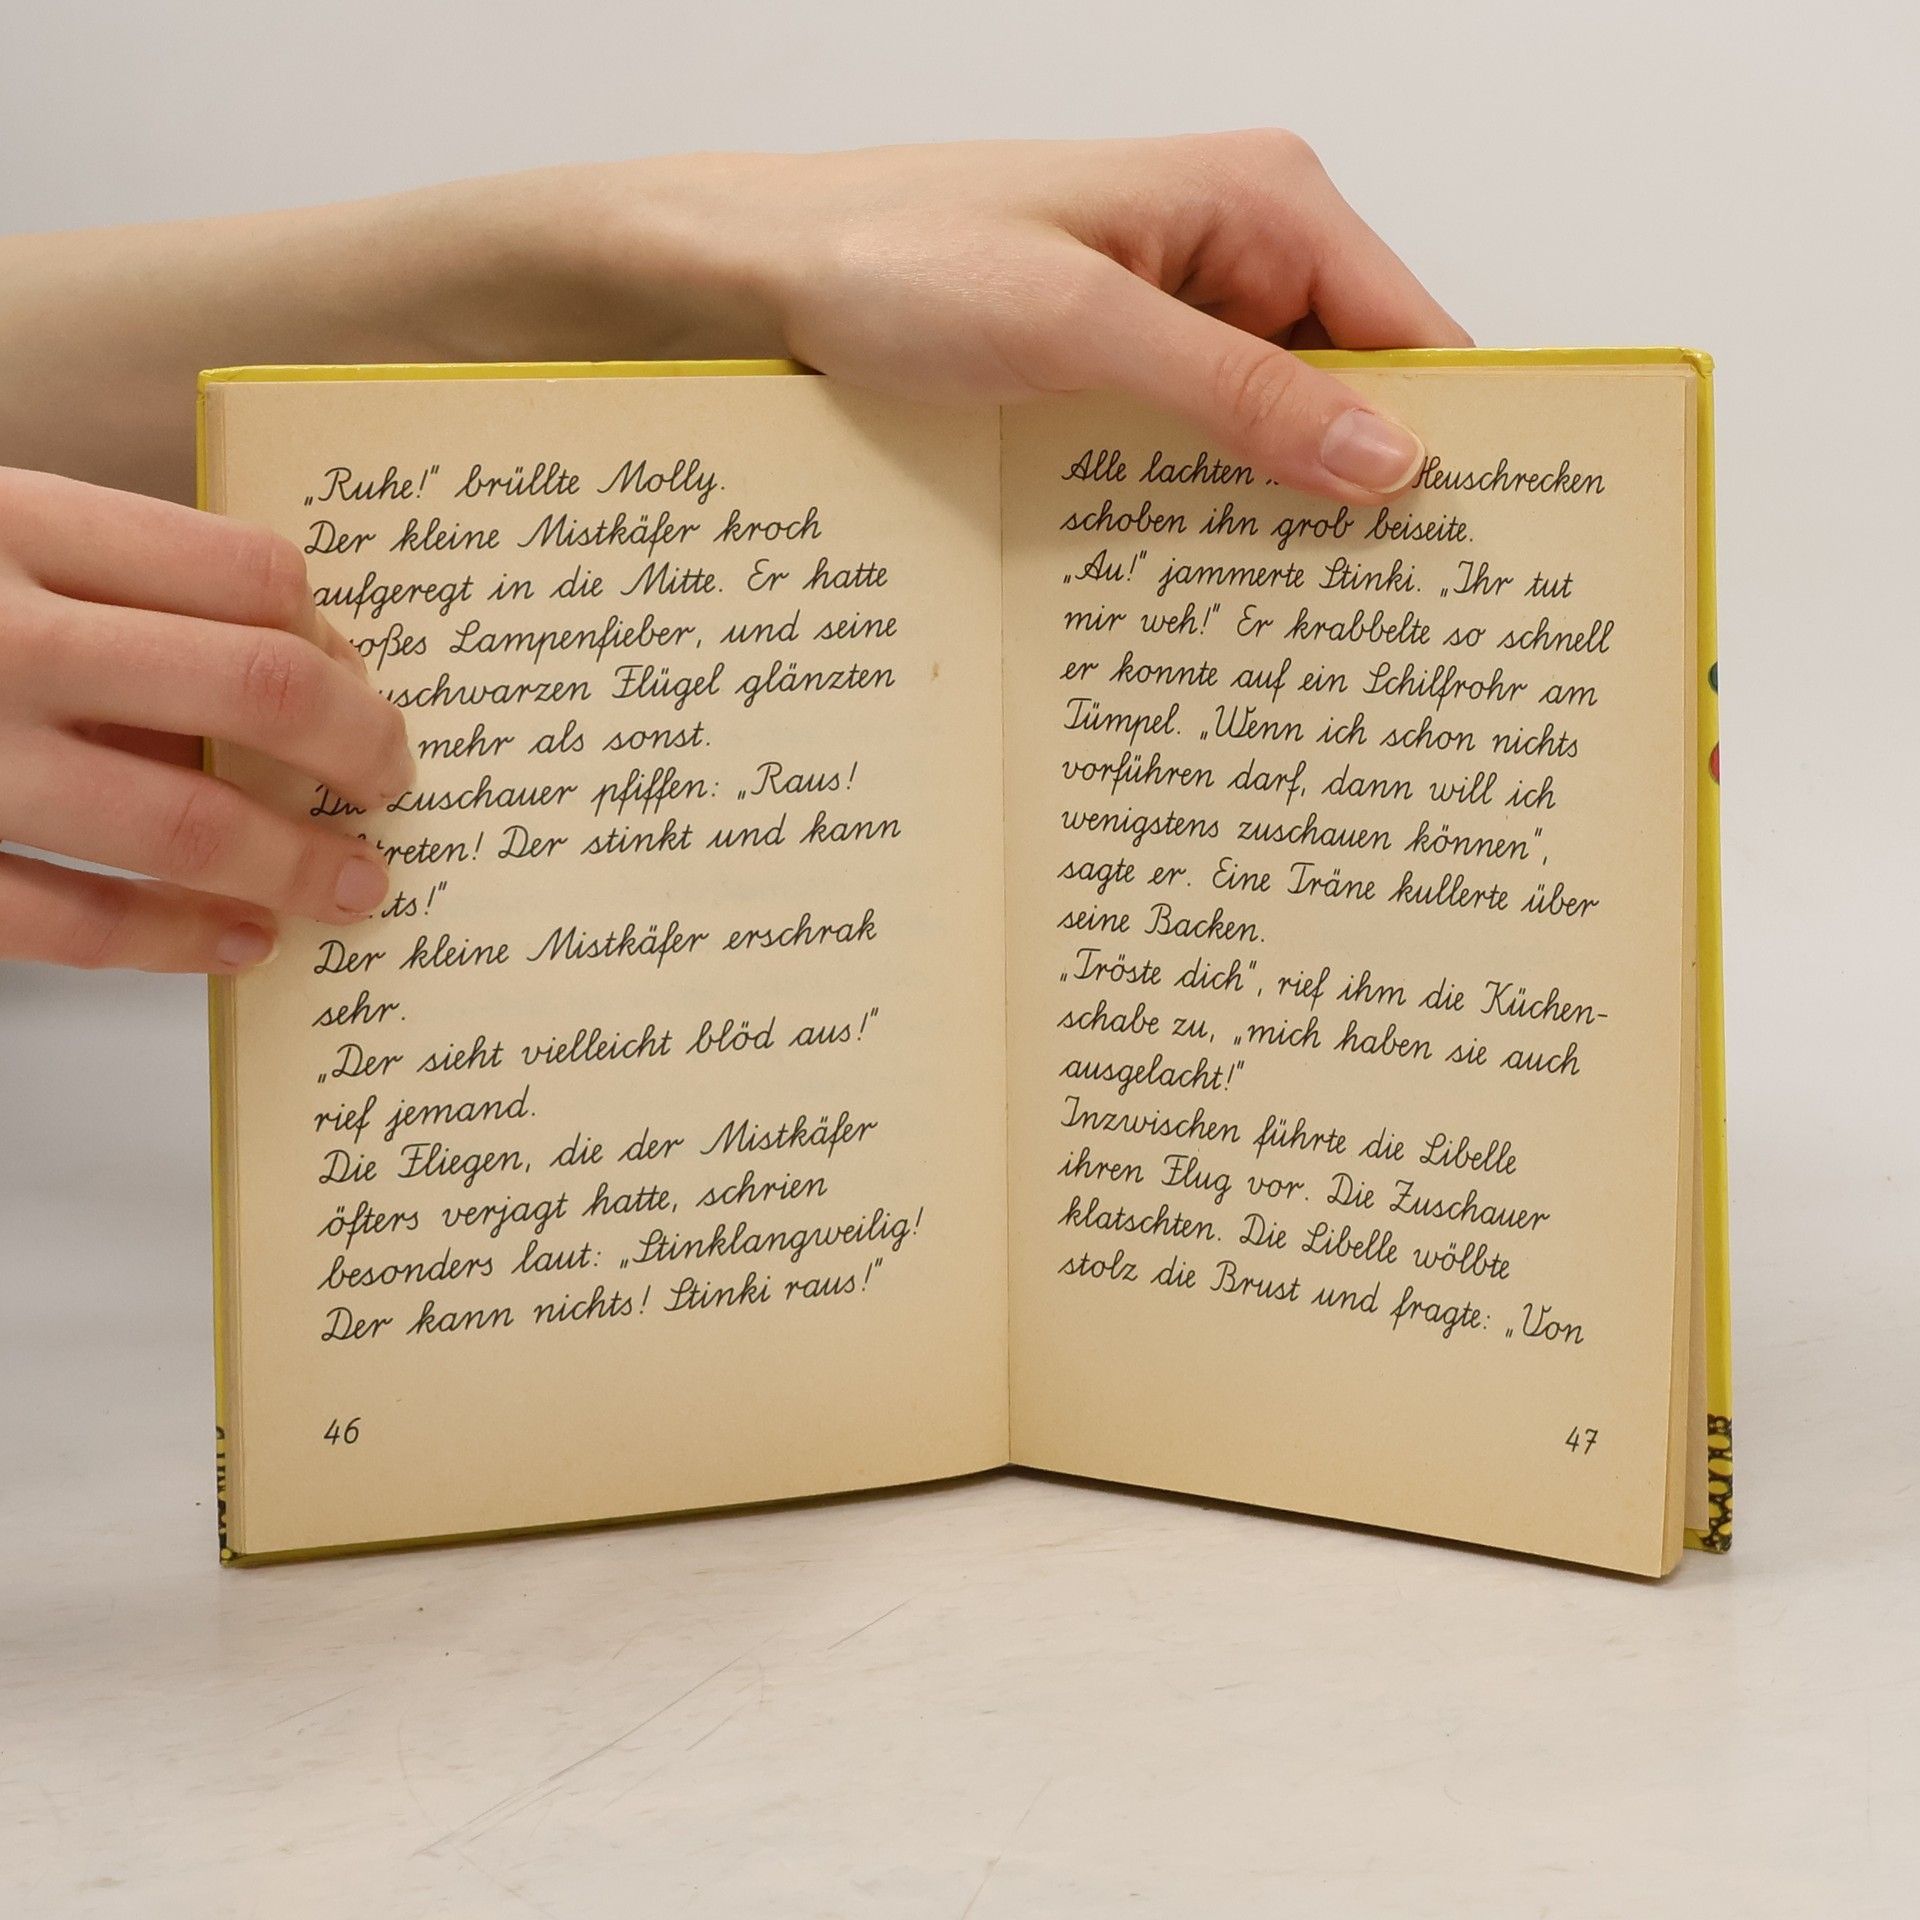 „Ruhe!“ brüllte Molly.
Der kleine Mistkäfer kroch
aufgeregt in die Mitte. Er hatte
Lampenfieber, und seine
Flügel glänzten
mehr als sonst.
Zuschauer pfiffen: „Raus!
Der stinkt und kann
Der kleine Mistkäfer erschrak
sehr.
„Der sieht vielleicht blöd aus!“
rief jemand.
Die Fliegen, die der Mistkäfer
öfters verjagt hatte, schrien
besonders laut: „Stinklangweilig!
Der kann nichts! Stinki raus!“
46
Alle lachten Heuschrecken
schoben ihn grob beiseite.
„Au!“ jammerte Stinki. „Ihr tut
mir weh!“ Er krabbelte so schnell
er konnte auf ein Schilfrohr am
Tümpel. „Wenn ich schon nichts
vorführen darf, dann will ich
wenigstens zuschauen können“,
sagte er. Eine Träne kullerte über
seine Backen.
„Tröste dich“, rief ihm die Küchen-
schabe zu, „mich haben sie auch
ausgelacht!“
Inzwischen führte die Libelle
ihren Flug vor. Die Zuschauer
klatschten. Die Libelle wölbte
stolz die Brust und fragte: „Von
47